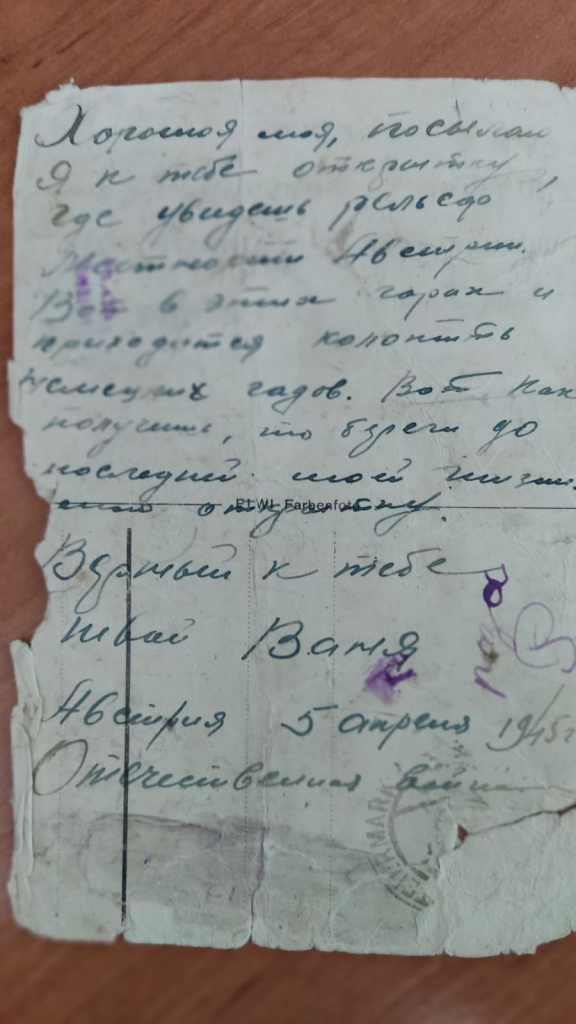 Хорошая моя, посылаю
я к тебе открытку,
где увидешь рельефо
местности Австрии.
Вот в этих горах и
приходится колотить
немецких гадов. Вот как
получишь, то береги до
последней моей жизни.
открытку.
ELWI Farbenfoto
Верный к тебе
твой Ваня
Австрия 5 апреля 1945г
Отечественная война